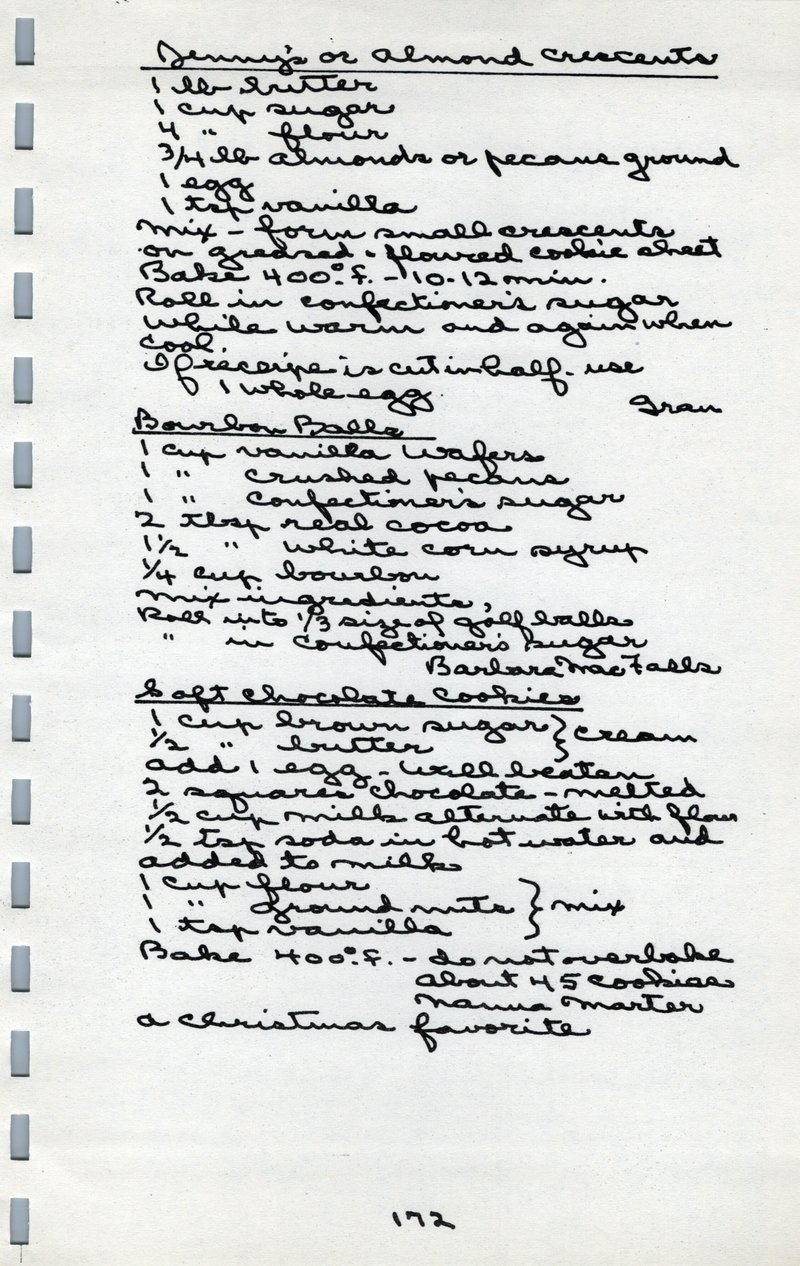 Jenny's or Almond Crescents
1 lb butter
1 cup sugar
4 " flour
3/4 lb almonds or pecans ground
1 egg
1 tsp vanilla
Mix - form small crescents
on greased - floured cookie sheet
Bake 400° F. - 10-12 min.
Roll in confectioner's sugar
while warm and again when
cool.
If receipe is cut in half - use
1 whole egg.
Gran
Bourbon Balls
1 cup vanilla wafers
1 " crushed pecans
1 " confectioner's sugar
2 tbsp real cocoa
1 1/2 " white corn syrup
1/4 cup bourbon
Mix ingredients,
Roll into 1/3 size of golf balls
" in confectioner's sugar
Barbara MacFalls
Soft Chocolate Cookies
1 cup brown sugar } cream
1/2 " butter
add 1 egg - well beaten
2 squares chocolate - melted
1/2 cup milk alternate with flour
1/2 tsp soda in hot water and
added to milk
1 cup flour
1 " ground nuts } mix
1 tsp vanilla
Bake 400° F. - do not overbake
about 45 cookies
Nanna Marter
a Christmas favorite
172